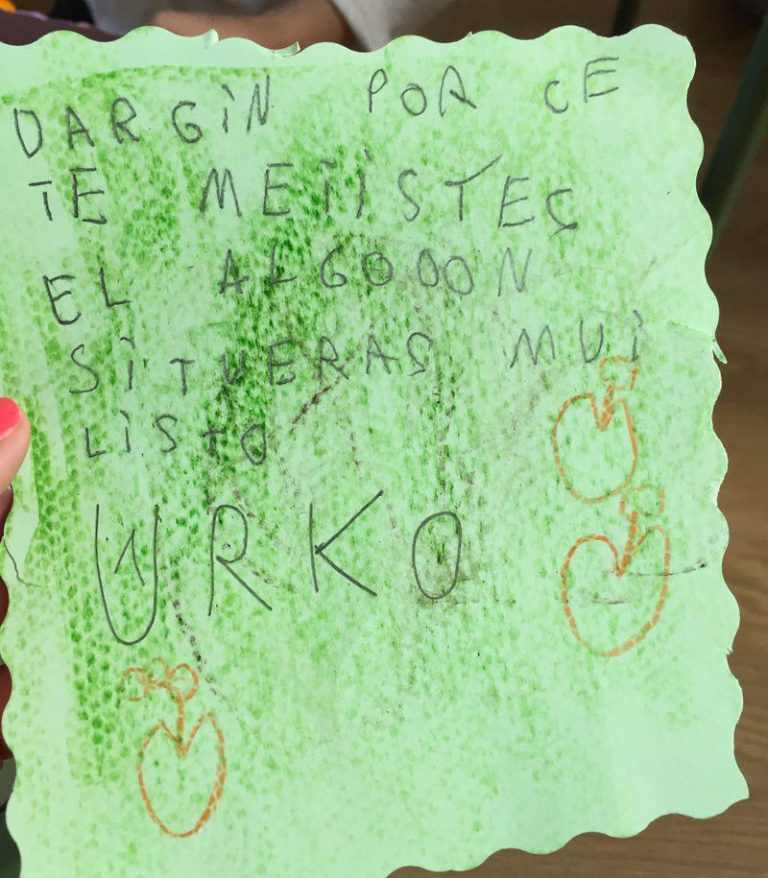 DARGIN POR CE
TE METISTES
EL ALGODON
SI TUERAS MUI
LISTO
URKO